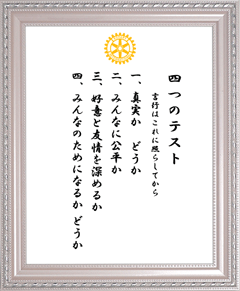 四つのテスト
言行はこれに照らしてから
一、真実か　どうか
二、みんなに公平か
三、好意と友情を深めるか
四、みんなのためになるか どうか